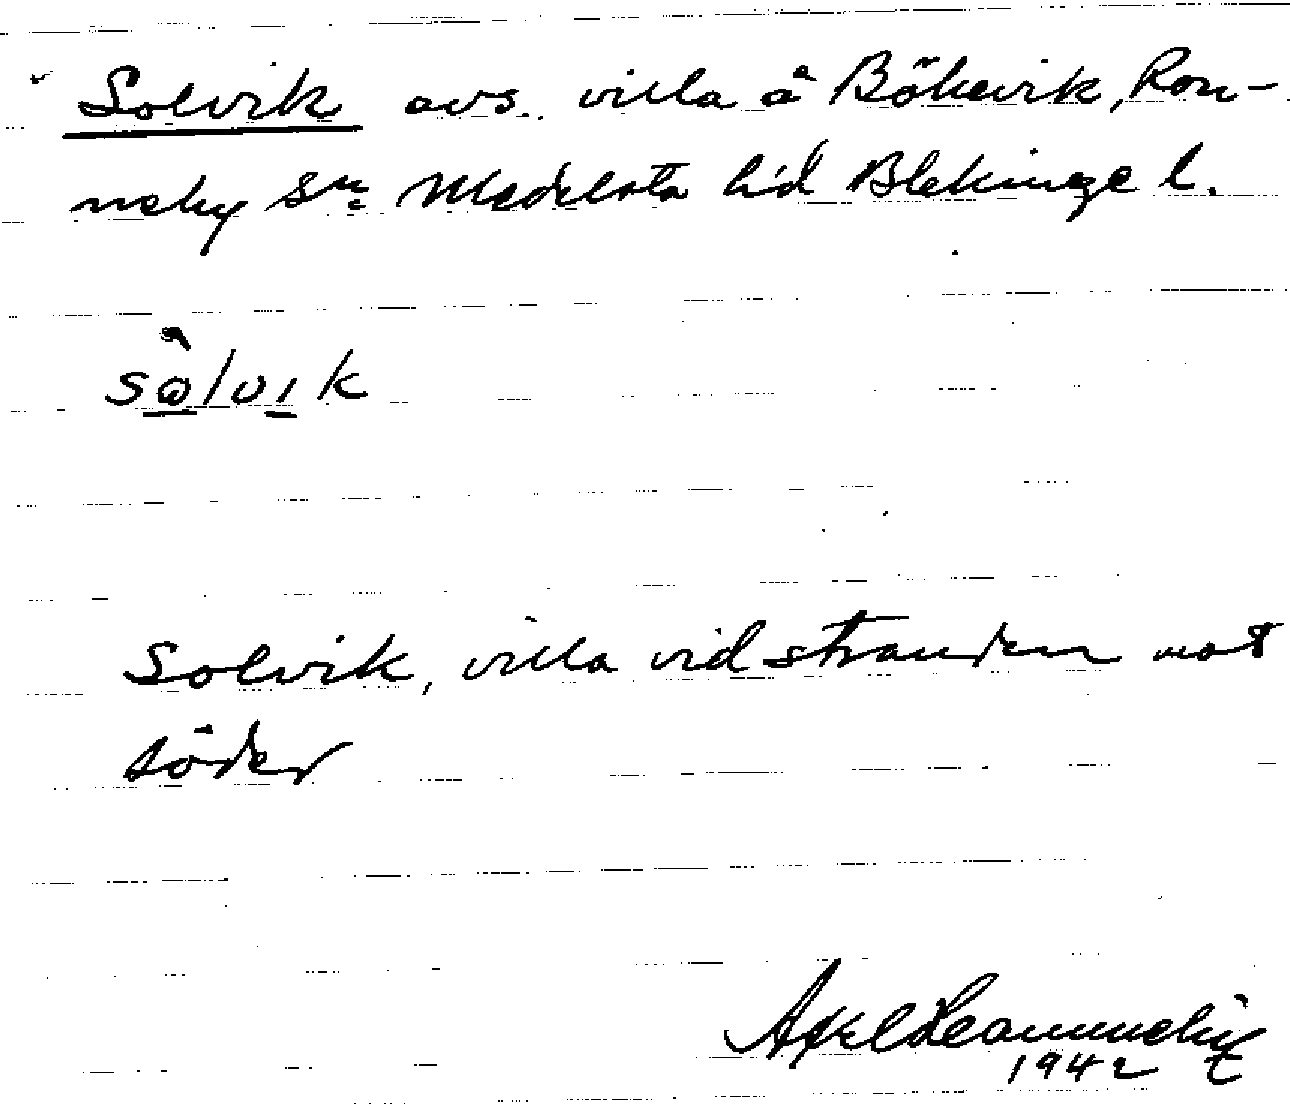 Solvik avs. villa å Bökevik, Ron-
neby sn: Medelsta hd Blekinge l.
sòlvik
Solvik, villa vid stranden mot
söder
Axel
1942